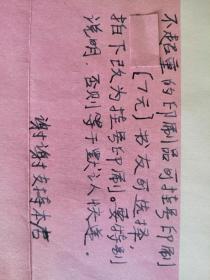 不超重的印刷品可挂号印刷
(7元) 书友可选择
拍下改为挂号印刷。要特别
说明. 否则等于默认快递.
谢谢支持本店